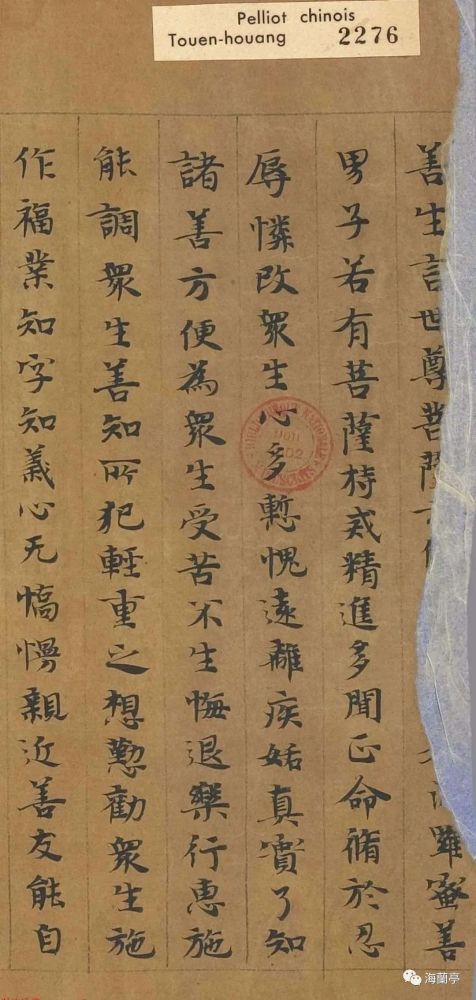 Pelliot chinois
Touen-houang 2276
善生言世尊菩薩 蜜善
男子若有菩薩持戒精進多聞正命脩於忍
辱憐改眾生心多慙愧遠離疾妬真實了知
諸善方便為眾生受苦不生悔退樂行惠施
能調眾生善知所犯輕重之想懃勸眾生施
作福業知字知義心无憍慢親近善友能自
海蘭亭